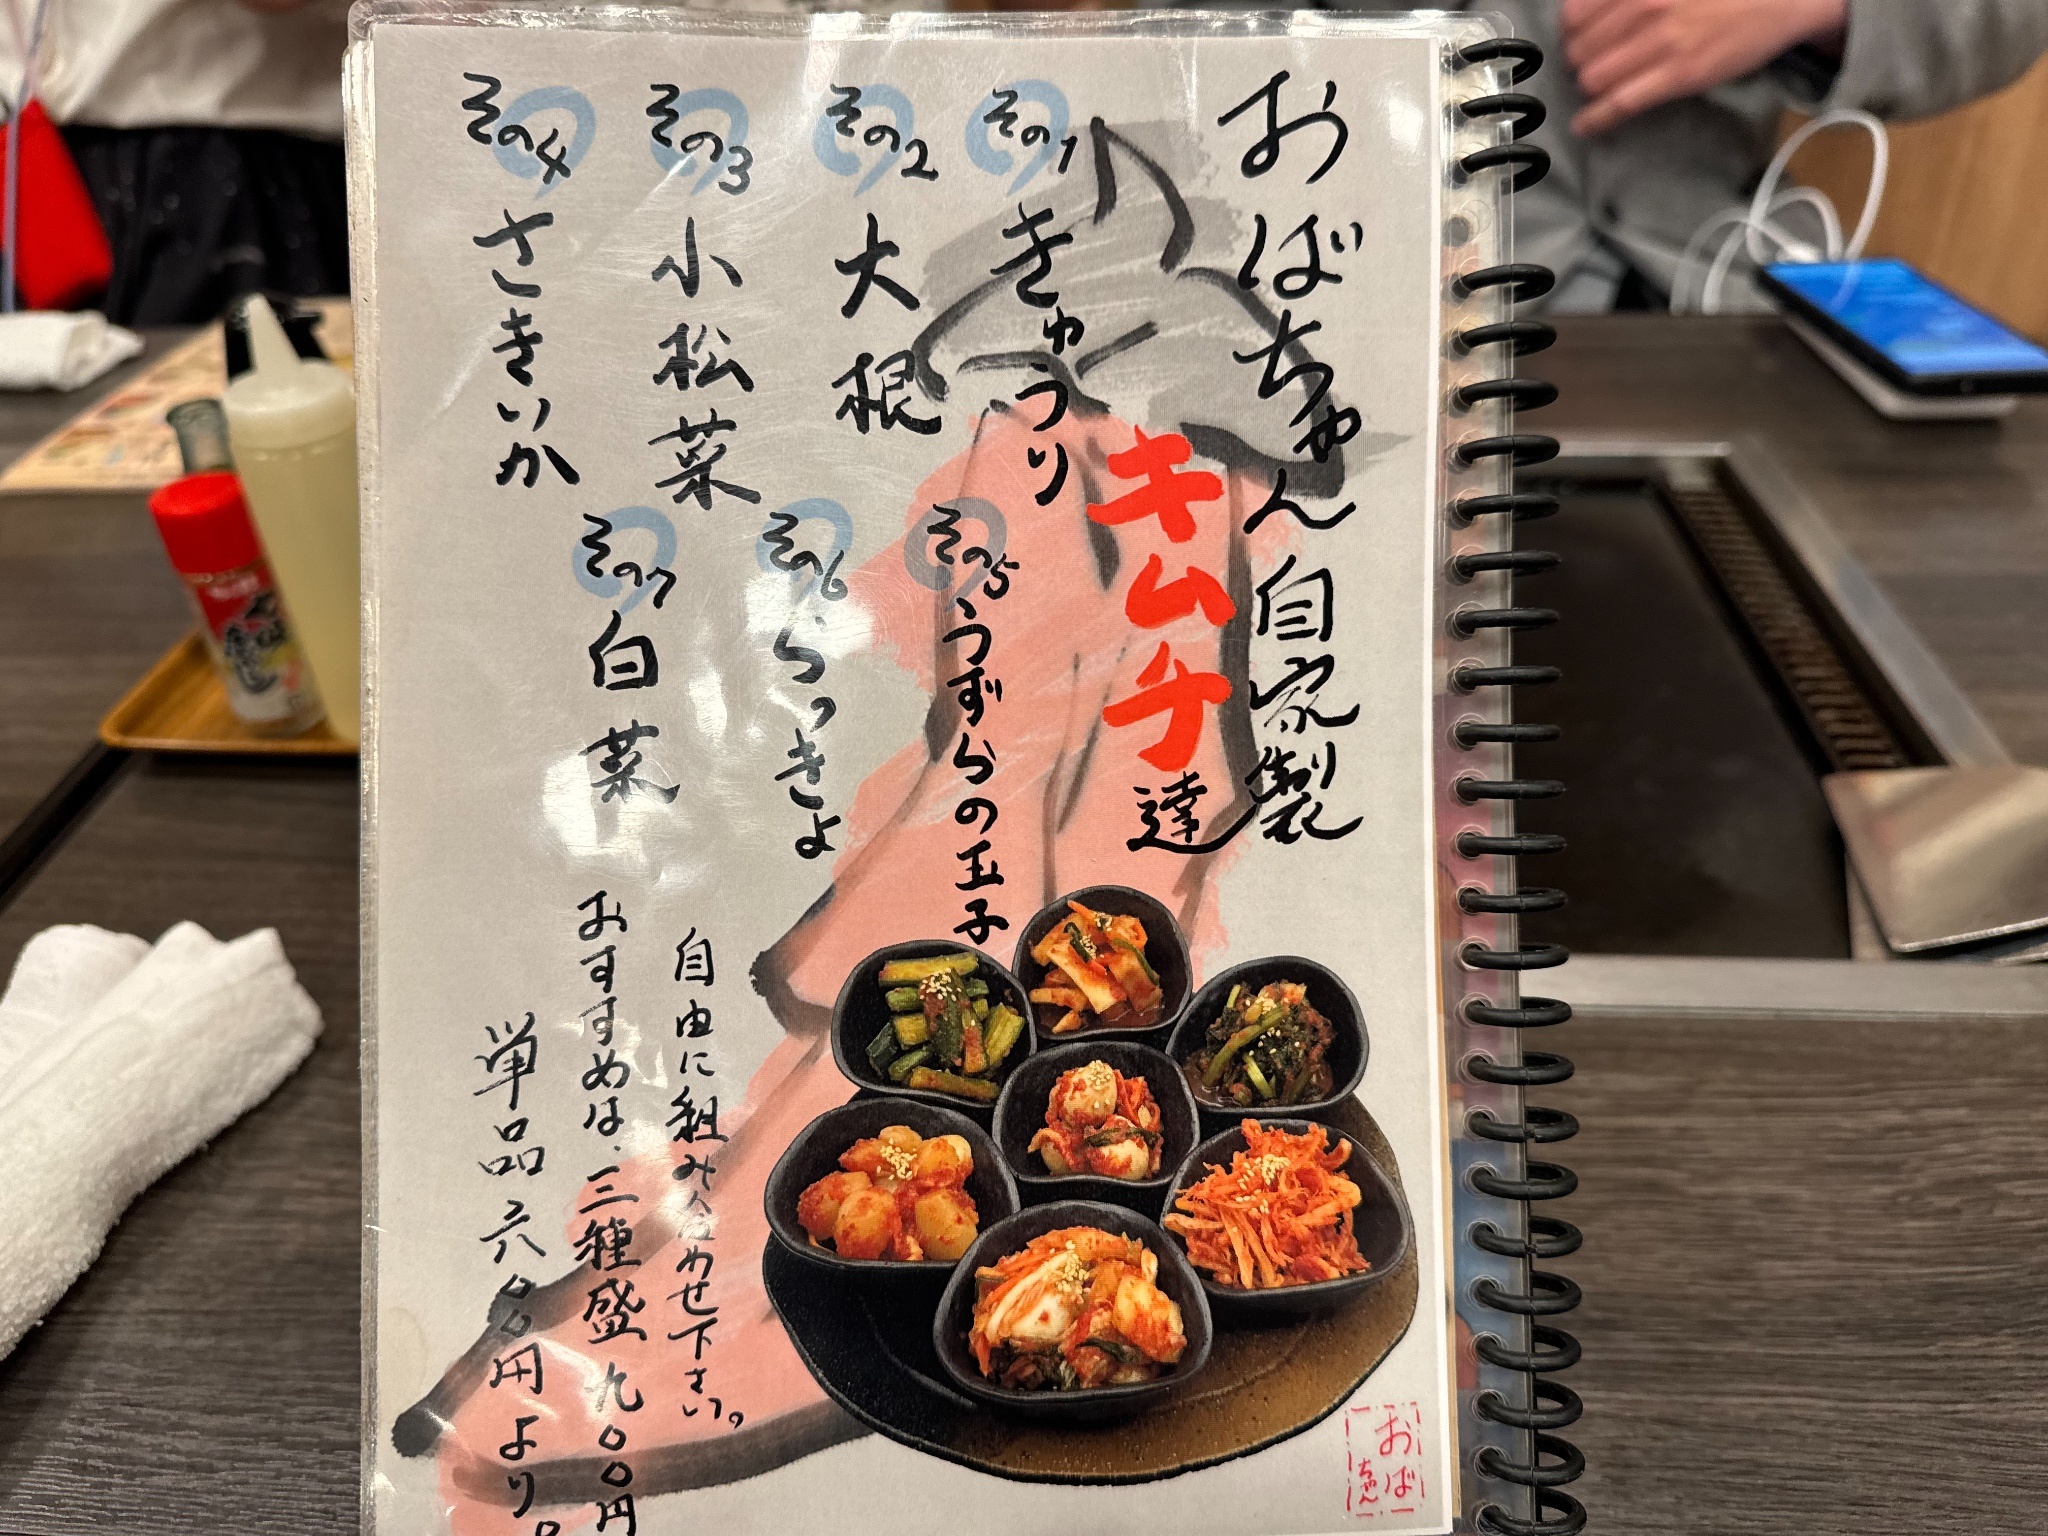 おばちゃん自家製
キムチ達
その1 きゅうり
その2 大根
その3 小松菜
その4 さきいか
その5 うずらの玉子
その6 らっきょ
その7 白菜
自由に組み合わせ下さい。
おすすめは、三種盛九〇〇円
単品六〇〇円より。
おば
ちゃん